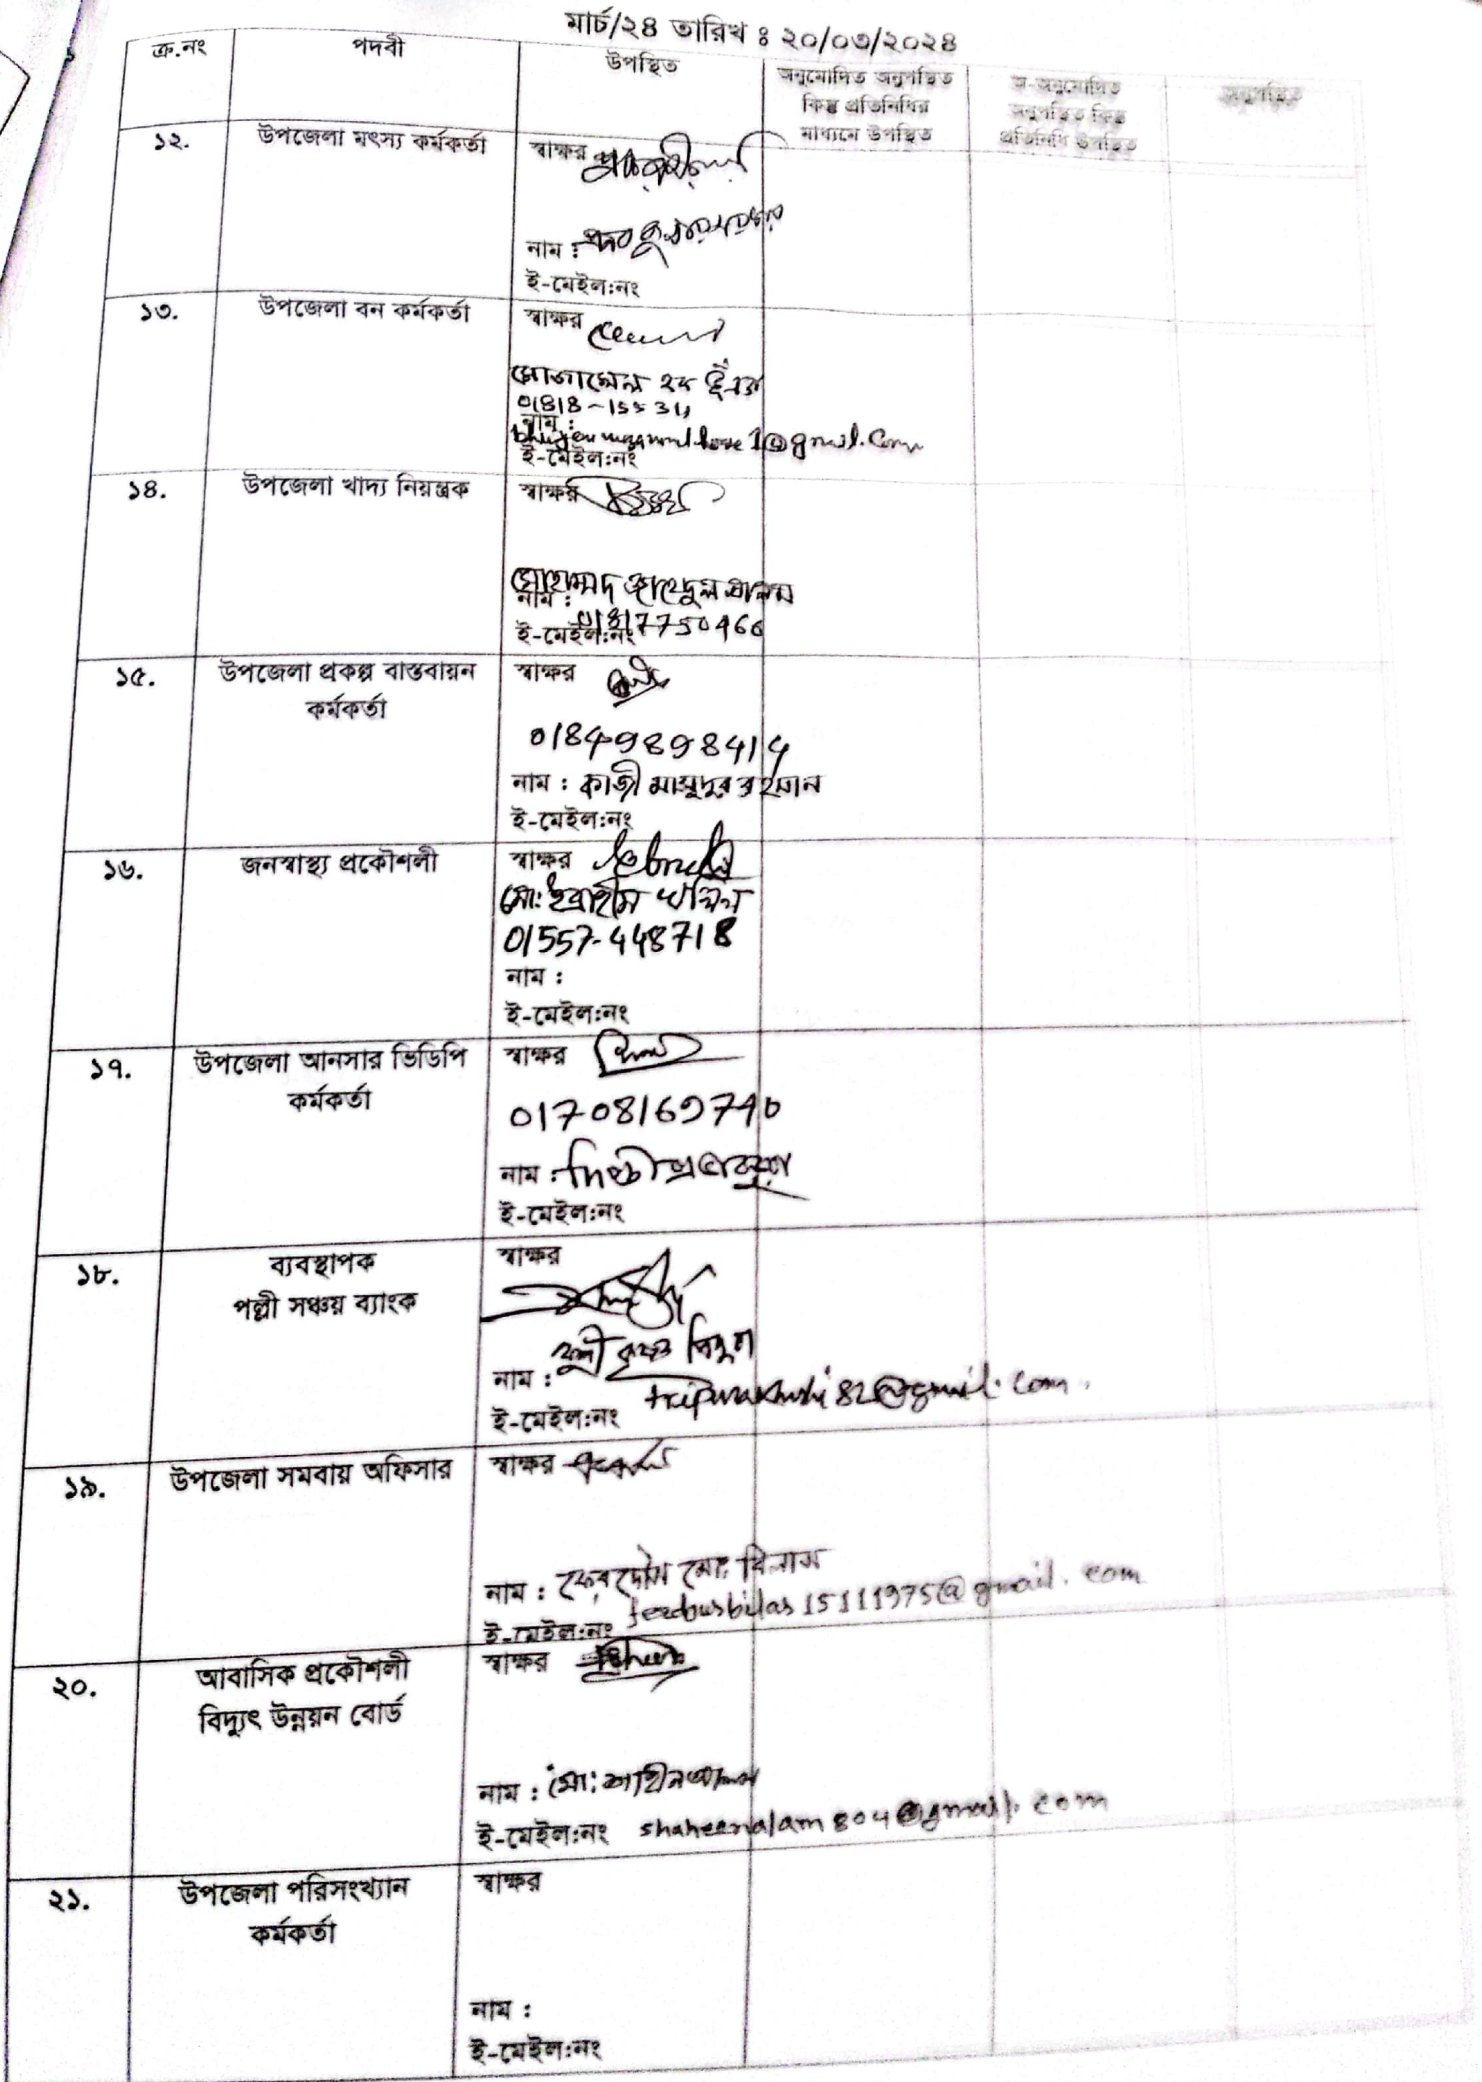 মার্চ/২৪ তারিখ : ২০/০৩/২০২৪
ক্র.নং পদবী উপস্থিত অনুমোদিত অনুপস্থিত কিন্তু প্রতিনিধির মাধ্যমে উপস্থিত অ-অনুমোদিত অনুপস্থিত কিন্তু প্রতিনিধি উপস্থিত অনুপস্থিত
১২. উপজেলা মৎস্য কর্মকর্তা স্বাক্ষর
নাম :
ই-মেইল:নং
১৩. উপজেলা বন কর্মকর্তা স্বাক্ষর
মোজাম্মেল হক
নাম :
@gmail.com
ই-মেইল:নং
১৪. উপজেলা খাদ্য নিয়ন্ত্রক স্বাক্ষর
মোহাম্মদ জাহেদুল আলম
নাম :
ই-মেইল:নং
১৫. উপজেলা প্রকল্প বাস্তবায়ন স্বাক্ষর
কর্মকর্তা
01849898414
নাম : কাজী মাসুদুর রহমান
ই-মেইল:নং
১৬. জনস্বাস্থ্য প্রকৌশলী স্বাক্ষর
মো: ইব্রাহীম খলিল
01557-448718
নাম :
ই-মেইল:নং
১৭. উপজেলা আনসার ভিডিপি স্বাক্ষর
কর্মকর্তা
01708169740
নাম :
ই-মেইল:নং
১৮. ব্যবস্থাপক স্বাক্ষর
পল্লী সঞ্চয় ব্যাংক
নাম :
ই-মেইল:নং
১৯. উপজেলা সমবায় অফিসার স্বাক্ষর
নাম : ফেরদৌস মো: বিলাস
ই-মেইল:নং ferdousbilas15111975@gmail.com
২০. আবাসিক প্রকৌশলী স্বাক্ষর
বিদ্যুৎ উন্নয়ন বোর্ড
নাম : মো: শাহীন আলম
ই-মেইল:নং shaheenalam804@gmail.com
২১. উপজেলা পরিসংখ্যান স্বাক্ষর
কর্মকর্তা
নাম :
ই-মেইল:নং